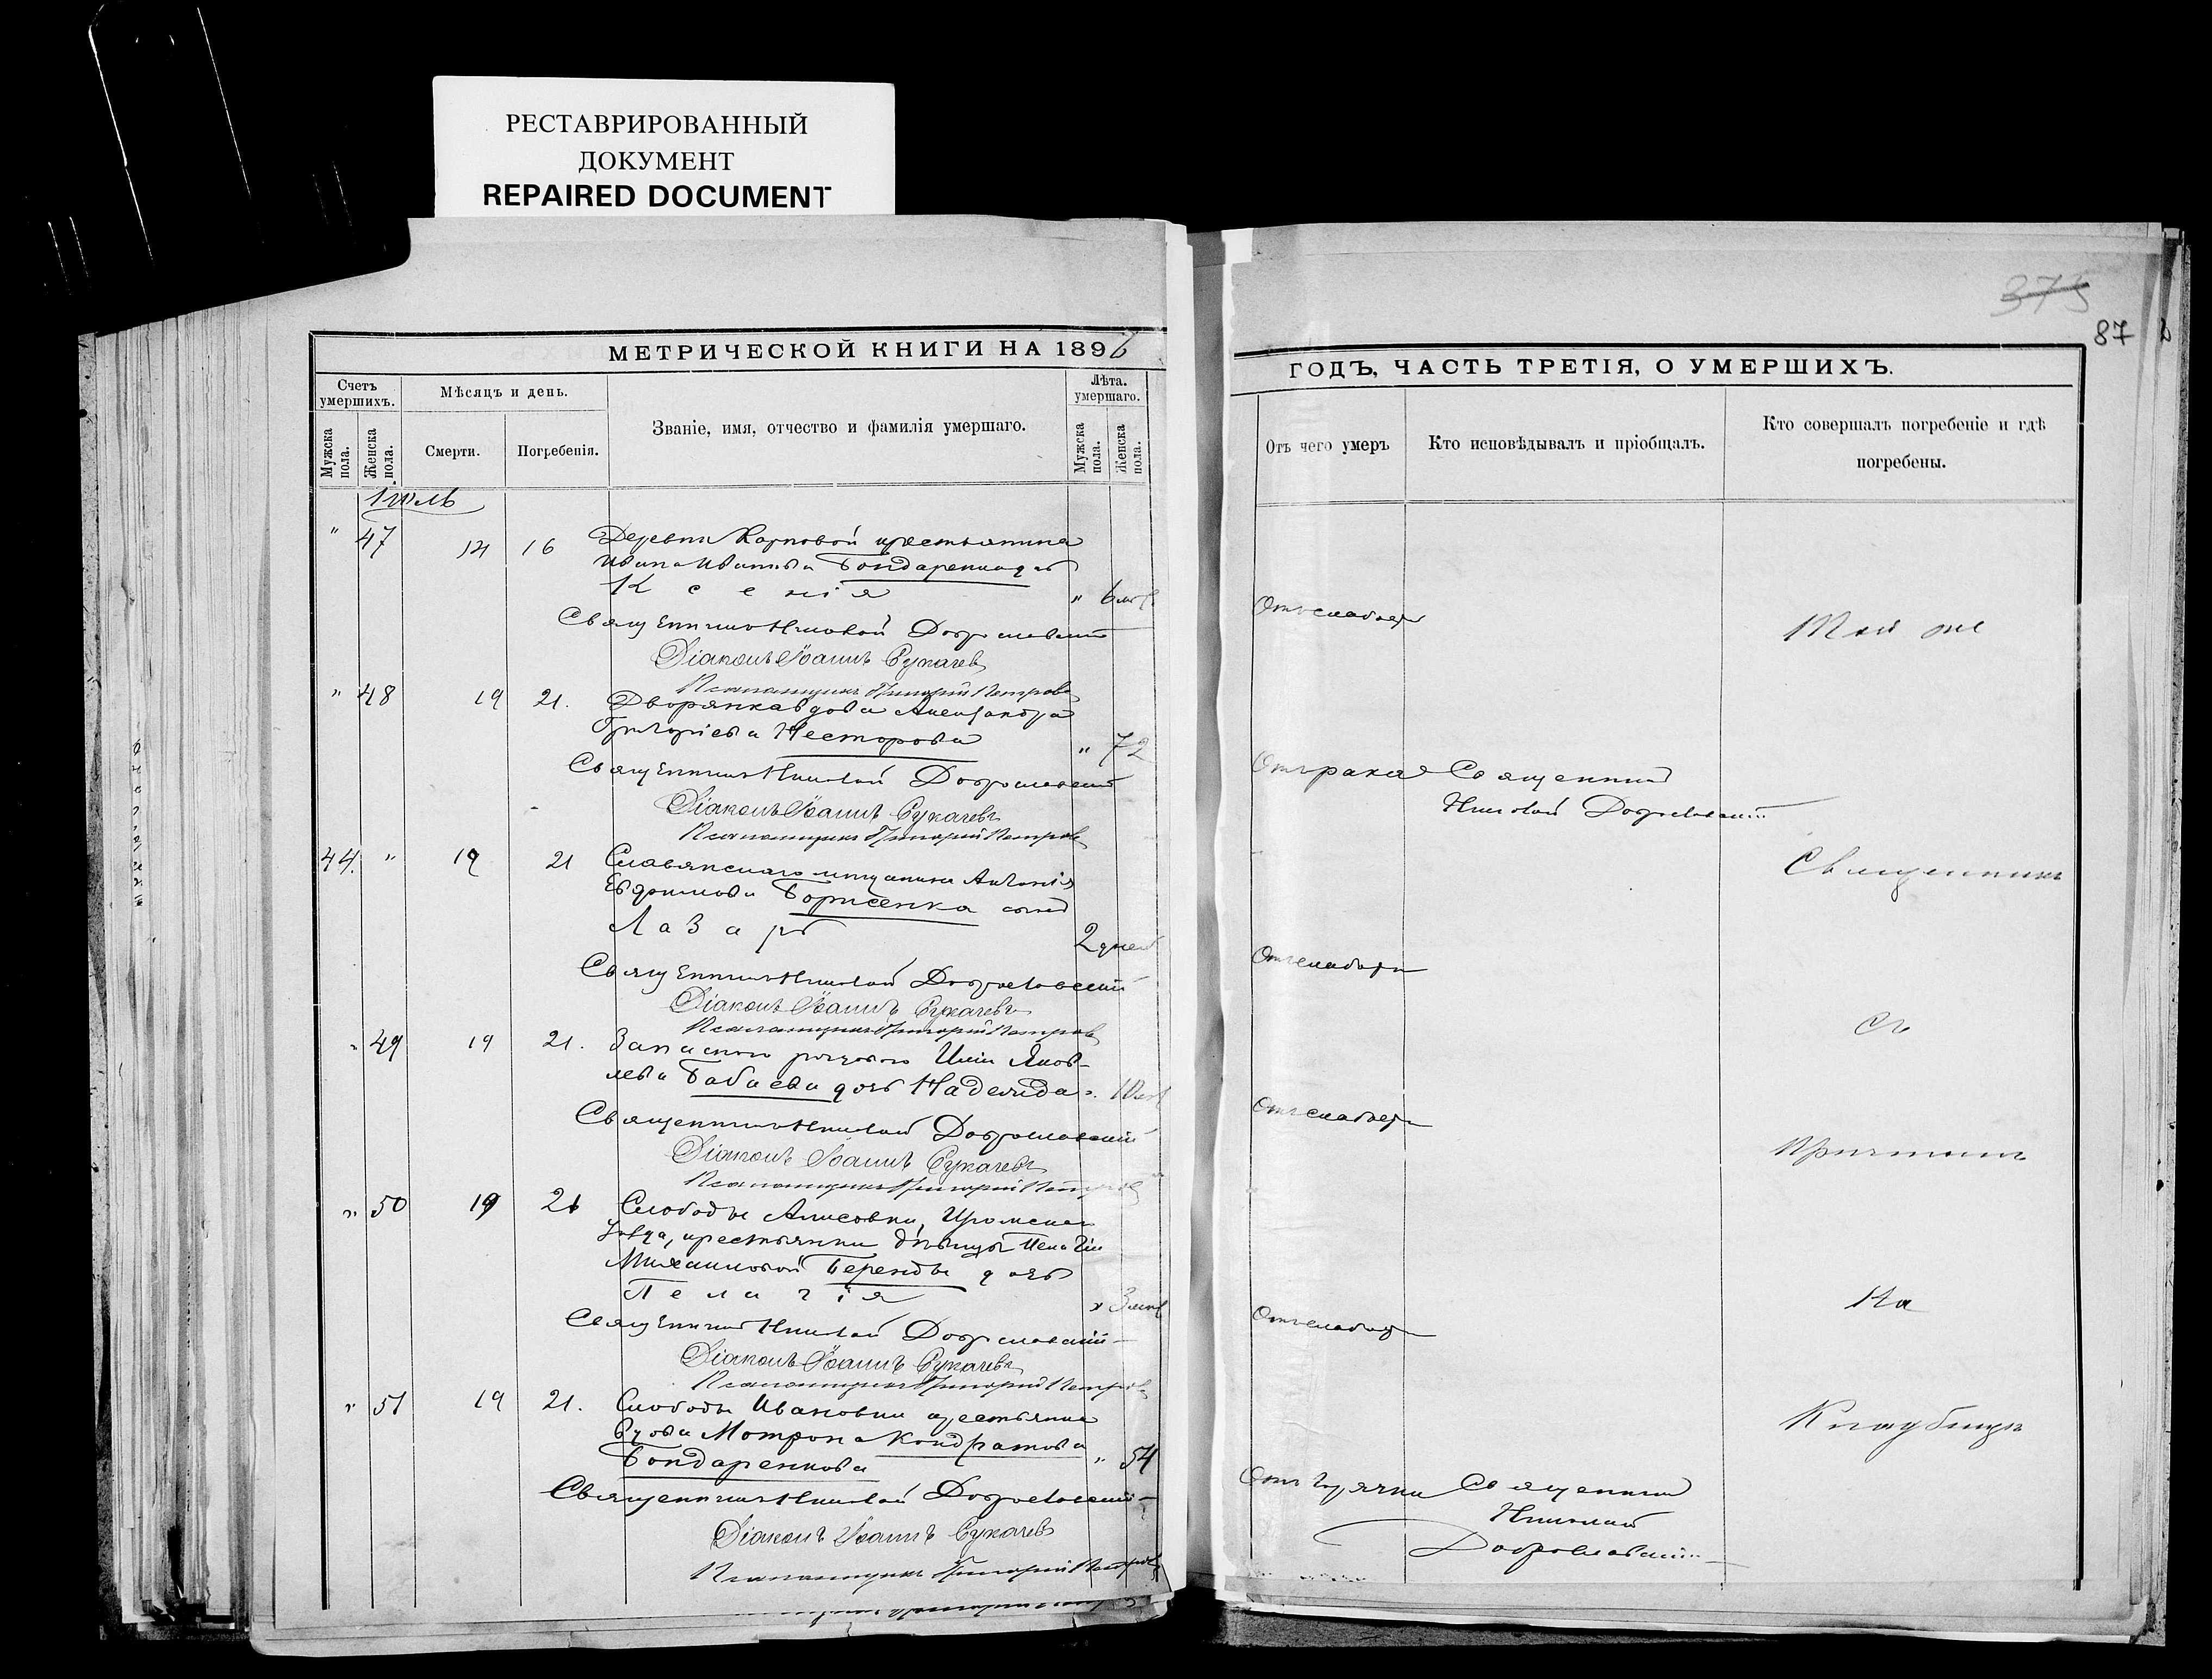 РЕСТАВРИРОВАННЫЙ
ДОКУМЕНТ
REPAIRED DOCUMENT
375
87
МЕТРИЧЕСКОЙ КНИГИ НА 1896
ГОДЪ, ЧАСТЬ ТРЕТІЯ, О УМЕРШИХЪ.
Счетъ умершихъ.
Мѣсяцъ и день.
Званіе, имя, отчество и фамилія умершаго.
Лѣта. умершаго.
Мужска пола.
Женска пола.
Смерти.
Погребенія.
Мужска пола.
Женска пола.
Отъ чего умеръ
Кто исповѣдывалъ и пріобщалъ.
Кто совершалъ погребеніе и гдѣ погребены.
Іюль
" 47 14 16 Деревни Карповой крестьянина
Ивана Иванова Бондаренка дочь
Ксенія " 6
Отъ слабости
Той же
Священникъ Николай Доброславскій
Діаконъ Іоаннъ Сукачевъ
Псаломщикъ Григорій Петровъ
" 48 19 21. Дворянка вдова Александра
Григоріева Несторова " 72
Отъ рака Священникъ
Николай Доброславскій
Священникъ Николай Доброславскій
Діаконъ Іоаннъ Сукачевъ
Псаломщикъ Григорій Петровъ
44. " 19 21 Славянскаго мѣщанина Антонія
Евдокимова Борисенка сынъ
Лазарь 2 дней
Отъ слабости
Священникъ
Священникъ Николай Доброславскій
Діаконъ Іоаннъ Сукачевъ
Псаломщикъ Григорій Петровъ
" 49 19 21. Запаснаго рядового Иліи Яков-
лева Бабаева дочь Надежда "
Отъ слабости
съ
Священникъ Николай Доброславскій
Діаконъ Іоаннъ Сукачевъ
Псаломщикъ Григорій Петровъ
причтомъ
" 50 19 21 Слободы Алисовки, Изюмскаго
уѣзда, крестьянки дѣвицы Пелагіи
Михаиловой Беренды дочь
Пелагія " 3
Отъ слабости
На
Священникъ Николай Доброславскій
Діаконъ Іоаннъ Сукачевъ
Псаломщикъ Григорій Петровъ
" 51 19 21. Слободы Ивановки крестьянка
вдова Мотрона Кондратова
Бондаренкова " 54
Отъ горячки Священникъ
Николай
Доброславскій
Кладбищѣ
Священникъ Николай Доброславскій
Діаконъ Іоаннъ Сукачевъ
Псаломщикъ Григорій Петровъ